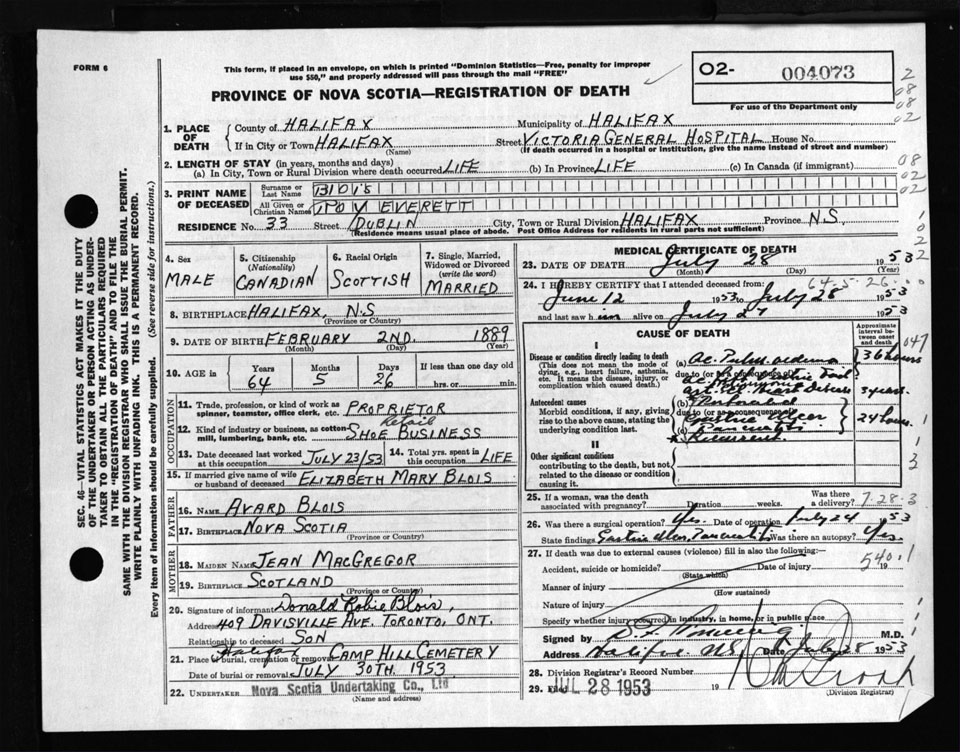 FORM 6
This form, if placed in an envelope, on which is printed "Dominion Statistics—Free, penalty for improper
use $50," and properly addressed will pass through the mail "FREE"
PROVINCE OF NOVA SCOTIA—REGISTRATION OF DEATH
O2- 004073
For use of the Department only
2
08
08
02
1. PLACE OF DEATH
County of HALIFAX Municipality of HALIFAX
If in City or Town HALIFAX Street VICTORIA GENERAL HOSPITAL House No.
(Name) (If death occurred in a hospital or institution, give the name instead of street and number)
2. LENGTH OF STAY (in years, months and days)
(a) In City, Town or Rural Division where death occurred LIFE (b) In Province LIFE (c) In Canada (if immigrant)
08
02
02
3. PRINT NAME OF DECEASED
Surname or Last Name BLOIS
All Given or Christian Names ROY EVERETT
RESIDENCE No. 33 Street DUBLIN City, Town or Rural Division HALIFAX Province N.S.
(Residence means usual place of abode. Post Office Address for residents in rural parts not sufficient)
4. SEX
MALE
5. Citizenship (Nationality)
CANADIAN
6. Racial Origin
SCOTTISH
7. Single, Married, Widowed or Divorced (write the word)
MARRIED
8. BIRTHPLACE HALIFAX, N.S
(Province or Country)
9. DATE OF BIRTH FEBRUARY 2ND. 1889
(Month) (Day) (Year)
10. AGE in
Years Months Days If less than one day old
64 5 26 hrs. or min.
OCCUPATION
11. Trade, profession or kind of work as
spinner, teamster, office clerk, etc. PROPRIETOR
12. Kind of industry or business, as cotton-
mill, lumbering, bank, etc. Retail SHOE BUSINESS
13. Date deceased last worked at this occupation JULY 23/53
14. Total yrs. spent in this occupation LIFE
15. If married give name of wife or husband of deceased ELIZABETH MARY BLOIS
FATHER
16. NAME AVARD BLOIS
17. BIRTHPLACE NOVA SCOTIA
(Province or Country)
MOTHER
18. MAIDEN NAME JEAN MACGREGOR
19. BIRTHPLACE SCOTLAND
(Province or Country)
20. Signature of informant Donald Robie Blois,
Address 409 DAVISVILLE AVE. TORONTO, ONT.
Relationship to deceased SON
21. Place of burial, cremation or removal Halifax CAMP HILL CEMETERY
Date of burial or removal JULY 30TH. 1953
22. UNDERTAKER Nova Scotia Undertaking Co., Ltd
(Name and address)
MEDICAL CERTIFICATE OF DEATH
23. DATE OF DEATH July 28 1953
(Month) (Day) (Year)
64-5-26
24. I HEREBY CERTIFY that I attended deceased from:
June 12 1953 to July 28 1953
and last saw him alive on July 27 1953
CAUSE OF DEATH
Approximate interval between onset and death
I
Disease or condition directly leading to death
(This does not mean the mode of dying, e.g., heart failure, asthenia, etc. It means the disease, injury, or complication which caused death.)
(a) Ac. Pulm. oedema 36 hours
due to (or as a consequence of)
heart disease 3 years.
Antecedent causes
Morbid conditions, if any, giving rise to the above cause, stating the underlying condition last.
(b) Perforated
due to (or as a consequence of)
Gastric Ulcer 24 hours.
(c) Pancreatitis
Recurrent
II
Other significant conditions
contributing to the death, but not related to the disease or condition causing it.
047
25. If a woman, was the death associated with pregnancy? Duration weeks. Was there a delivery? 7-28-3
26. Was there a surgical operation? Yes. Date of operation July 24 1953
State findings Gastric Ulcer, Pancreatitis Was there an autopsy? Yes.
27. If death was due to external causes (violence) fill in also the following:—
540.1
Accident, suicide or homicide? Date of injury 19
(State which)
Manner of injury
(How sustained)
Nature of injury
Specify whether injury occurred in industry, in home, or in public place
Signed by M.D.
Address Halifax NS Date July 28 1953
28. Division Registrar's Record Number
29. Filed JUL 28 1953 19
(Division Registrar)
SEC. 46—VITAL STATISTICS ACT MAKES IT THE DUTY
OF THE UNDERTAKER OR PERSON ACTING AS UNDER-
TAKER TO OBTAIN ALL THE PARTICULARS REQUIRED
IN THE "REGISTRATION OF DEATH" AND TO FILE THE
SAME WITH THE DIVISION REGISTRAR WHO SHALL ISSUE THE BURIAL PERMIT.
WRITE PLAINLY WITH UNFADING INK. THIS IS A PERMANENT RECORD.
Every item of information should be carefully supplied. (See reverse side for instructions.)